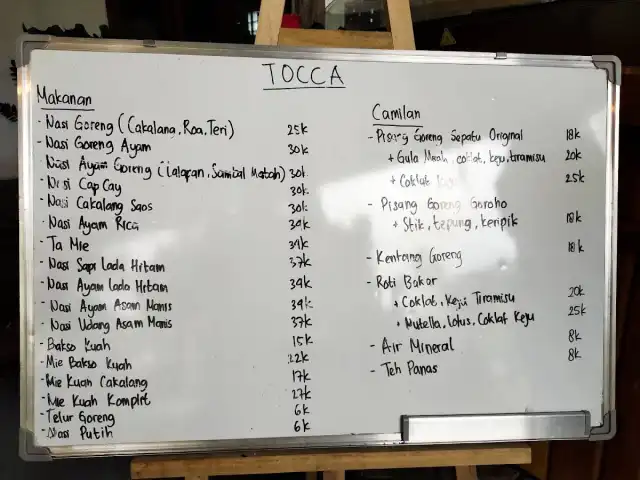 TOCCA
Makanan
- Nasi Goreng (Cakalang, Roa, Teri) 25k
- Nasi Goreng Ayam 30k
- Nasi Ayam Goreng (Lalapan, Sambal Matah) 30k
- Nasi Cap Cay 30k
- Nasi Cakalang Saos 30k
- Nasi Ayam Rica 34k
- Ta Mie 34k
- Nasi Sapi Lada Hitam 37k
- Nasi Ayam Lada Hitam 34k
- Nasi Ayam Asam Manis 34k
- Nasi Udang Asam Manis 37k
- Bakso Kuah 15k
- Mie Bakso Kuah 22k
- Mie Kuah Cakalang 17k
- Mie Kuah Komplit 27k
- Telur Goreng 6k
- Nasi Putih 6k
Camilan
- Pisang Goreng Sepatu Original 18k
+ Gula Merah, coklat, keju, tiramisu 20k
+ Coklat 25k
- Pisang Goreng Goroho
+ Stik, tepung, keripik 18k
- Kentang Goreng 18k
- Roti Bakar
+ Coklat, Keju Tiramisu 20k
+ Nutella, Lotus, Coklat Keju 25k
- Air Mineral 8k
- Teh Panas 8k